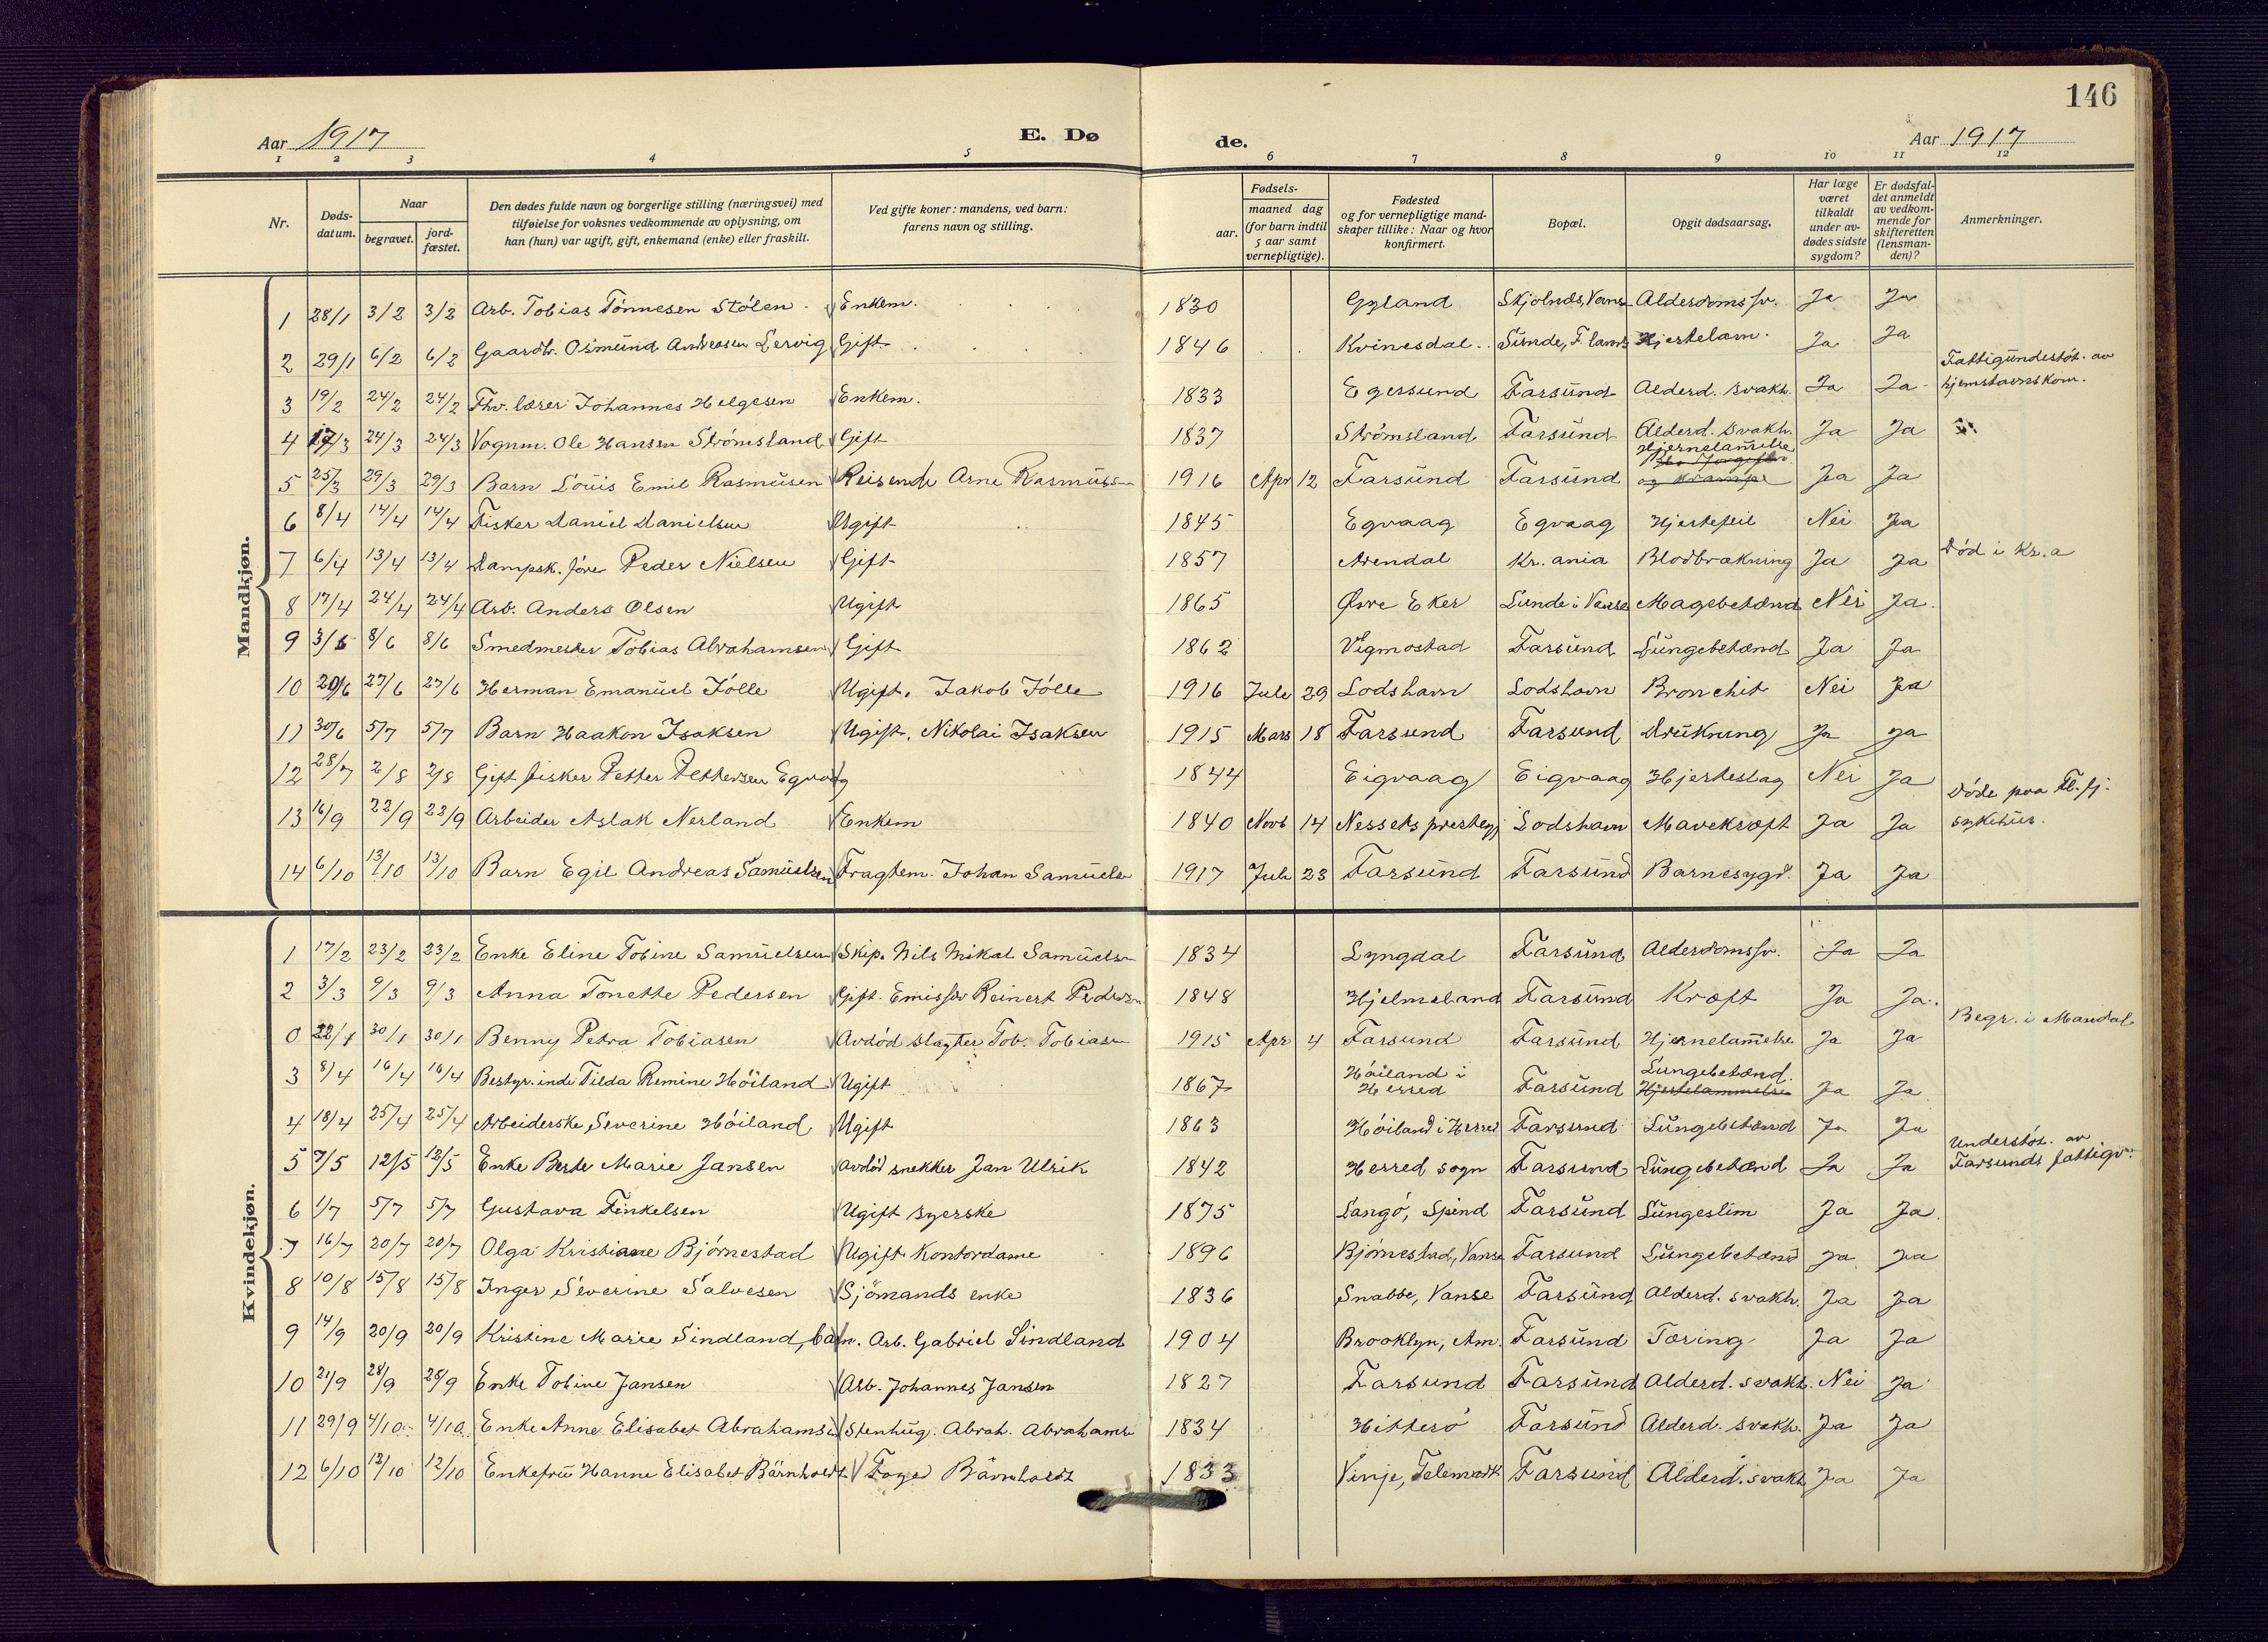 146
Aar 1917 E. Dø de. Aar 1917
1 2 3 4 5 6 7 8 9 10 11 12
Nr. Døds-datum. Naar begravet. jord-fæstet. Den dødes fulde navn og borgerlige stilling (næringsvei) med tilføielse for voksnes vedkommende av oplysning, om han (hun) var ugift, gift, enkemand (enke) eller fraskilt. Ved gifte koner: mandens, ved barn: farens navn og stilling. Fødsels- aar. maaned dag (for barn indtil 5 aar samt vernepligtige). Fødested og for vernepligtige mandskaper tillike: Naar og hvor konfirmert. Bopæl. Opgit dødsaarsag. Har læge været tilkaldt under avdødes sidste sygdom? Er dødsfaldet anmeldt av vedkommende for skifteretten (lensmanden)? Anmerkninger.
Mandkjøn.
1 28/1 3/2 3/2 Arb. Tobias Tönnesen Stölen Enkem. 1830 Gyland Skjolnds, Vanse Alderdomssv. Ja Ja
2 29/1 6/2 6/2 Gaardbr. Osmund Andreasen Lervig Gift 1846 Kvinesdal Sunde, F.land Hjertelam. Ja Ja
3 19/2 24/2 24/2 Fhv. lærer Johannes Helgesen Enkem. 1833 Egersund Farsund Alderd. svakh. Ja Ja Fattigundestöt. av hjemstavnskom.
4 17/3 24/3 24/3 Vognm. Ole Hansen Strömsland Gift 1837 Strömsland Farsund Alderd. svakh. Ja Ja
5 25/3 29/3 29/3 Barn Louis Emil Rasmusen Reisende Arne Rasmussen 1916 Apr 12 Farsund Farsund Hjernelam̄else og krampe Ja Ja
6 8/4 14/4 14/4 Fisker Daniel Danielsen Ugift 1845 Egvaag Egvaag Hjertefeil Nei Ja
7 6/4 13/4 13/4 Dampsk. förer Peder Nielsen Gift 1857 Arendal Kr.ania Blodbrækning Ja Ja Död i Kr.a
8 17/4 24/4 24/4 Arb. Anders Olsen Ugift 1865 Øvre Eker Lunde i Vanse Magebetænd Nei Ja.
9 3/6 8/6 8/6 Smedmester Tobias Abrahamsen Gift 1862 Vegmostad Farsund Lungebetænd Ja Ja
10 20/6 27/6 27/6 Herman Emanuel Jölle Ugift. Jakob Jölle 1916 Jule 29 Lodshavn Lodshavn Bronchit Nei Ja
11 30/6 5/7 5/7 Barn Haakon Isaksen Ugift. Nikolai Isaksen 1915 Mars 18 Farsund Farsund Drukning Ja Ja
12 28/7 2/8 2/8 Gift fisker Petter Pettersen Egvaag 1844 Eigvaag Eigvaag Hjerteslag Nei Ja
13 16/9 22/9 22/9 Arbeider Aslak Nerland Enkem 1840 Novb 14 Nessets prestegj Lodshavn Mavekræft Ja Ja Döde paa Fl.fj. sykehus.
14 6/10 13/10 13/10 Barn Egil Andreas Samuelsen Fragtem. Johan Samuelsen 1917 Juli 23 Farsund Farsund Barnesygd. Ja Ja
Kvindekjøn.
1 17/2 23/2 23/2 Enke Eline Tobine Samuelsen Skip. Nils Mikal Samuelsen 1834 Lyngdal Farsund Alderdomssv. Ja Ja
2 3/3 9/3 9/3 Anna Tonette Pedersen Gift. Emissær Reinert Pedersen 1848 Hjelmeland Farsund Kræft Ja Ja.
0 22/1 30/1 30/1 Benny Petra Tobiasen Avdöd slagter Tob. Tobiasen 1915 Apr 4 Farsund Farsund Hjernelam̄else Ja Ja Begr. i Mandal
3 8/4 16/4 16/4 Bestyr.inde Tilda Remine Höiland Ugift 1867 Höiland i Herred Farsund Lungebetænd. Hjertelammelse Ja Ja
4 18/4 25/4 25/4 Arbeiderske Severine Höiland Ugift 1863 Höiland i Herred Farsund Lungebetænd Ja Ja
5 7/5 12/5 12/5 Enke Berte Marie Jansen Avdöd snekker Jan Ulrik 1842 Herred sogn Farsund Lungebetænd Ja Ja Understöt. av Farsunds fattigv.
6 1/7 5/7 5/7 Gustava Finkelsen Ugift syerske 1875 Langö, Spind Farsund Lungeslim Ja Ja.
7 16/7 20/7 20/7 Olga Kristiane Björnestad Ugift Kontordame 1896 Björnestad, Vanse Farsund Lungebetænd Ja Ja
8 10/8 15/8 15/8 Inger Severine Salvesen Sjömands enke 1836 Snabbe, Vanse Farsund Alderd. svakh. Ja Ja
9 14/9 20/9 20/9 Kristine Marie Sindland, barn. Arb. Gabriel Sindland 1904 Brooklyn, Am. Farsund Tæring Ja Ja
10 21/9 28/9 28/9 Enke Tobine Jansen Arb. Johannes Jansen 1827 Farsund Farsund Alderd. svakh. Nei Ja
11 29/9 4/10 4/10 Enke Anne Elisabet Abrahamsen Stenhug. Abrah. Abrahams. 1834 Hitterö Farsund Alderd. svakh. Ja Ja
12 6/10 12/10 12/10 Enkefru Hanne Elisabet Bärnholdt Foged Bärnholdt 1833 Vinje, Telemark Farsund Alderd. svakh Ja Ja